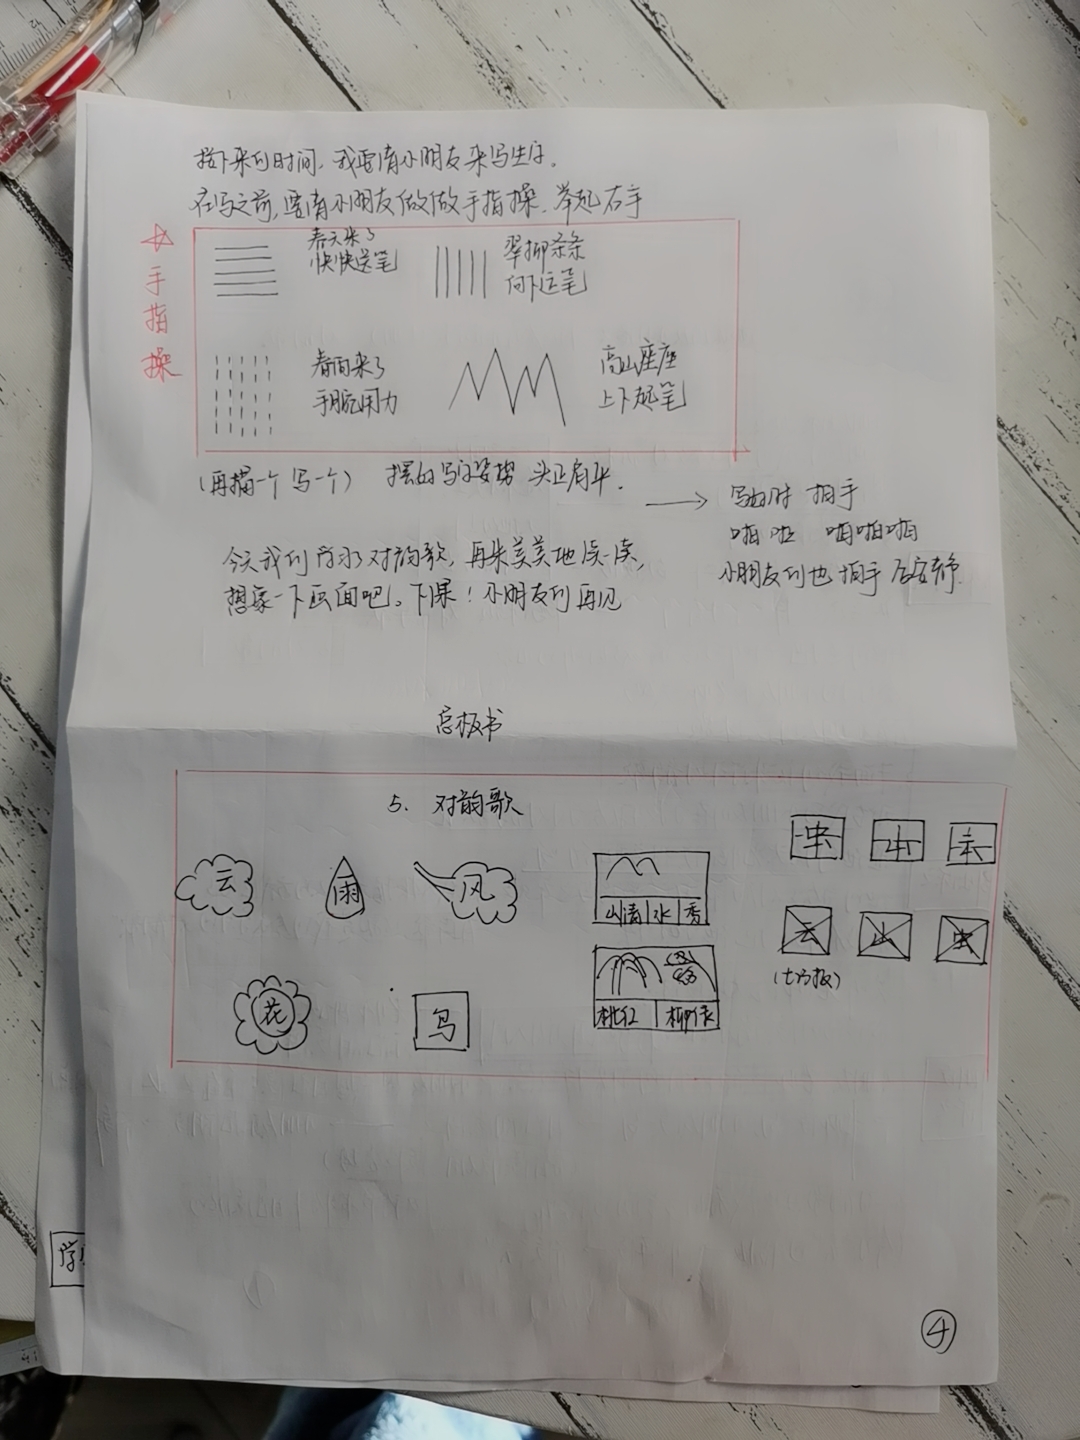 接下来的时间,我要请小朋友来写生字。
在写之前,要请小朋友做做手指操.举起右手
☆手指操
春天来了
快快送笔
翠柳条条
向下运笔
春雨来了
手腕用力
高山座座
上下起笔
(再描一个 写一个) 摆的写字姿势 头正肩平.
→ 写的时 拍手
啪啦 啪啪啪
小朋友们也拍手
今天我们学习了对韵歌,再来美美地读一读,
想象一下画面吧。下课!小朋友们再见
总板书
5. 对韵歌
云 雨 风
山清 水 秀
虫 山
云 山 虫
花 鸟
桃红 柳绿
学
④